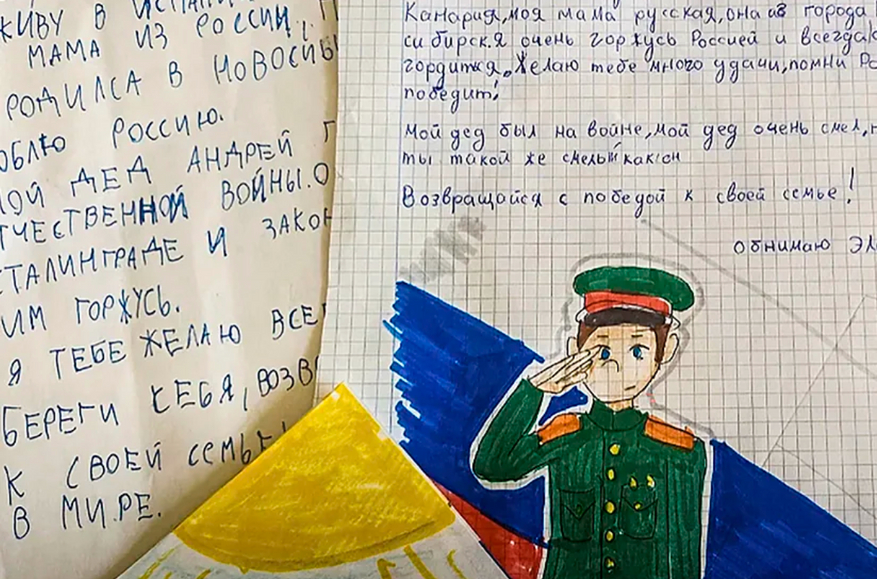 ЖИВУ В ИСПАНИ
МАМА ИЗ РОССИИ,
РОДИЛСА В НОВОСИБ
ЮБЛЮ РОССИЮ.
МОЙ ДЕД АНДРЕЙ
ТЧЕСТВЕННОЙ ВОЙНЫ.О
СТАЛИНГРАДЕ И ЗАКОН
ИМ ГОРЖУСЬ.
Я ТЕБЕ ЖЕЛАЮ ВСЕ
БЕРЕГИ СЕБЯ, ВОЗВ
К СВОЕЙ СЕМЬЕ!
В МИ.РЕ.
Канария, моя мама русская, она из города
сибирск.Я очень горжусь Россией и всегда
гордится. Желаю тебе много удачи, помни Ро
победит!
Мой дед был на войне, мой дед очень смел,
ты такой же смелый как он
Возвращайся с победой к своей семье!
Обнимаю Эл